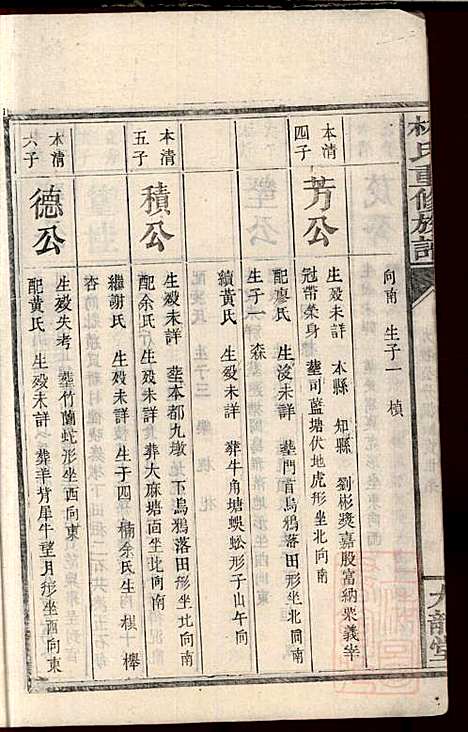 林氏重修族譜
九龍堂
向南 生子一 楨
本清四子
芳公
生殁未詳 本縣 知縣 劉彬獎嘉股富納粟義宰
冠帶榮身 塟司監塘伏地虎形坐北向南
配廖氏 生殁未詳 塟門首烏鴉落田形坐北向南
生子一 森
續黃氏 生殁未詳 葬牛角塘蜈蚣形子山午向
本清五子
積公
生殁未詳 塟本都九墩 下烏鴉落田形坐北向南
配余氏 生殁未詳 葬大麻塘面坐北向南
繼謝氏 生殁未詳 生子四 楠余氏生 棋 櫸
杏
本清六子
德公
生殁失考 塟竹蘭蛇形坐西向東
配黃氏 生殁未詳 葬羊背犀牛望月形坐酉向東